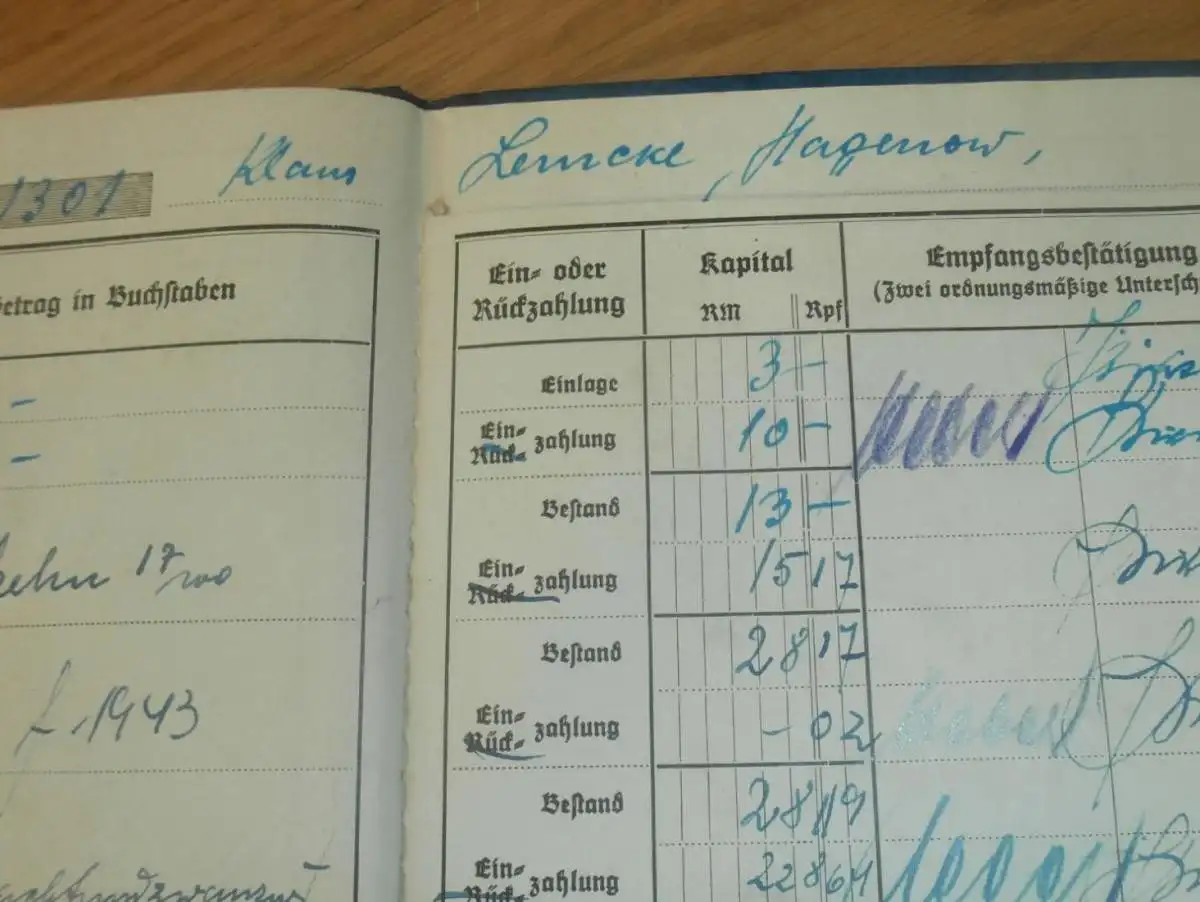 1301 Klaus Lemcke, Hagenow,
Betrag in Buchstaben
Ein- oder Rückzahlung
Kapital
RM Rpf
Empfangsbestätigung
(Zwei ordnungsmäßige Untersch
Einlage 3 –
–
Ein- Rück- zahlung 10 –
–
Bestand 13 –
zehn 17/100
Ein- Rück- zahlung 15 17
Bestand 28 17
f. 1943
Ein- Rück- zahlung – 02
Bestand 28 19
Ein- Rück- zahlung 228 64